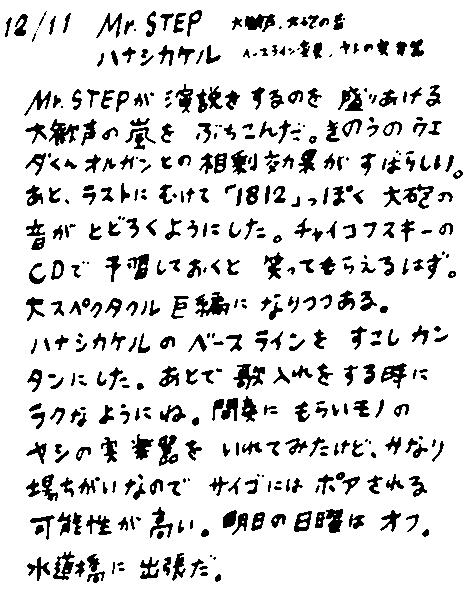 12/11 Mr.STEP 大歓声、大砲の音
ハナシカケル ベースライン変更、ヤシの実楽器
Mr.STEPが演説をするのを盛りあげる
大歓声の嵐をぶちこんだ。きのうのウエ
ダくんオルガンとの相剰効果がすばらしい。
あと、ラストにむけて「1812」っぽく大砲の
音がとどろくようにした。チャイコフスキーの
CDで予習しておくと笑ってもらえるはず。
大スペクタクル巨編になりつつある。
ハナシカケルのベースラインをすこしカン
タンにした。あとで歌入れをする時に
ラクなようにね。間奏にもらいモノの
ヤシの実楽器をいれてみたけど、かなり
場ちがいなのでサイゴにはボツにされる
可能性が高い。明日の日曜はオフ。
水道橋に出張だ。